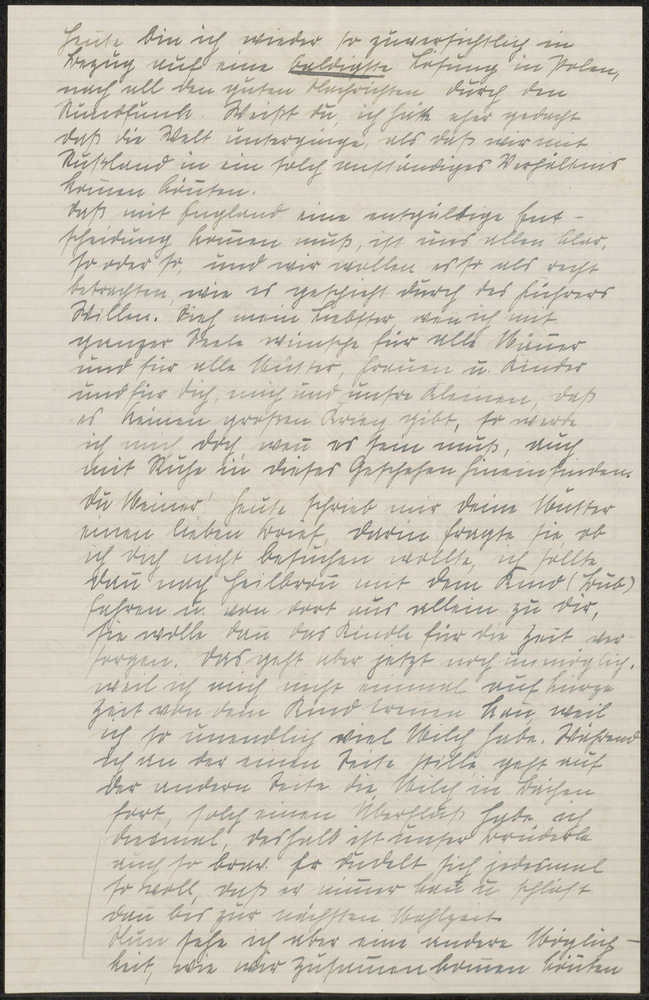 Heute bin ich wieder so zuversichtlich in
Bezug auf eine baldigste Lösung in Polen,
nach all den guten Nachrichten durch den
Rundfunk. Weißt du, ich hätte eher gedacht
daß die Welt unterginge, als daß wir mit
Rußland in ein solch anständiges Verhältnis
kom̅en kön̅ten.
Daß mit England eine entgültige Ent-
scheidung kom̅en muß, ist uns allen klar,
so oder so, und wir wollen es so als recht
betrachten, wie es geschieht durch des Führers
Willen. Sieh mein Liebster, wen̅ ich mit
ganzer Seele wünsche für alle Män̅er
und für alle Mütter, Frauen u. Kinder
und für dich, mich und unsre Kleinen, daß
es keinen großen Krieg gibt, so werde
ich mich doch, wen̅ es sein muß, auch
mit Ruhe in dieses Geschehen hineinfinden.
Du Meiner! Heute schrieb mir deine Mutter
einen lieben Brief, darin fragte sie, ob
ich dich nicht besuchen wollte, ich sollte
dan̅ nach Heilbron̅ mit dem Kind (Bub)
fahren u. von dort aus allein zu dir,
sie wolle dan̅ das Kindle für die Zeit ver-
sorgen. Das geht aber jetzt noch unmöglich,
weil ich mich nicht einmal auf kurze
Zeit von dem Kind tren̅en kan̅, weil
ich so unendlich viel Milch habe. Während
ich an der einen Seite stille, geht auf
der andern Seite die Milch in Bächen
fort, solch einen Überfluß habe ich
diesmal, deshalb ist unser Brüderle
auch so brav. Er dudelt sich jedesmal
so voll, daß er nim̅er kan̅ u. schläft
dan̅ bis zur nächsten Mahlzeit.
Nun sehe ich aber eine andere Möglich-
keit, wie wir zusam̅en kom̅en kön̅ten